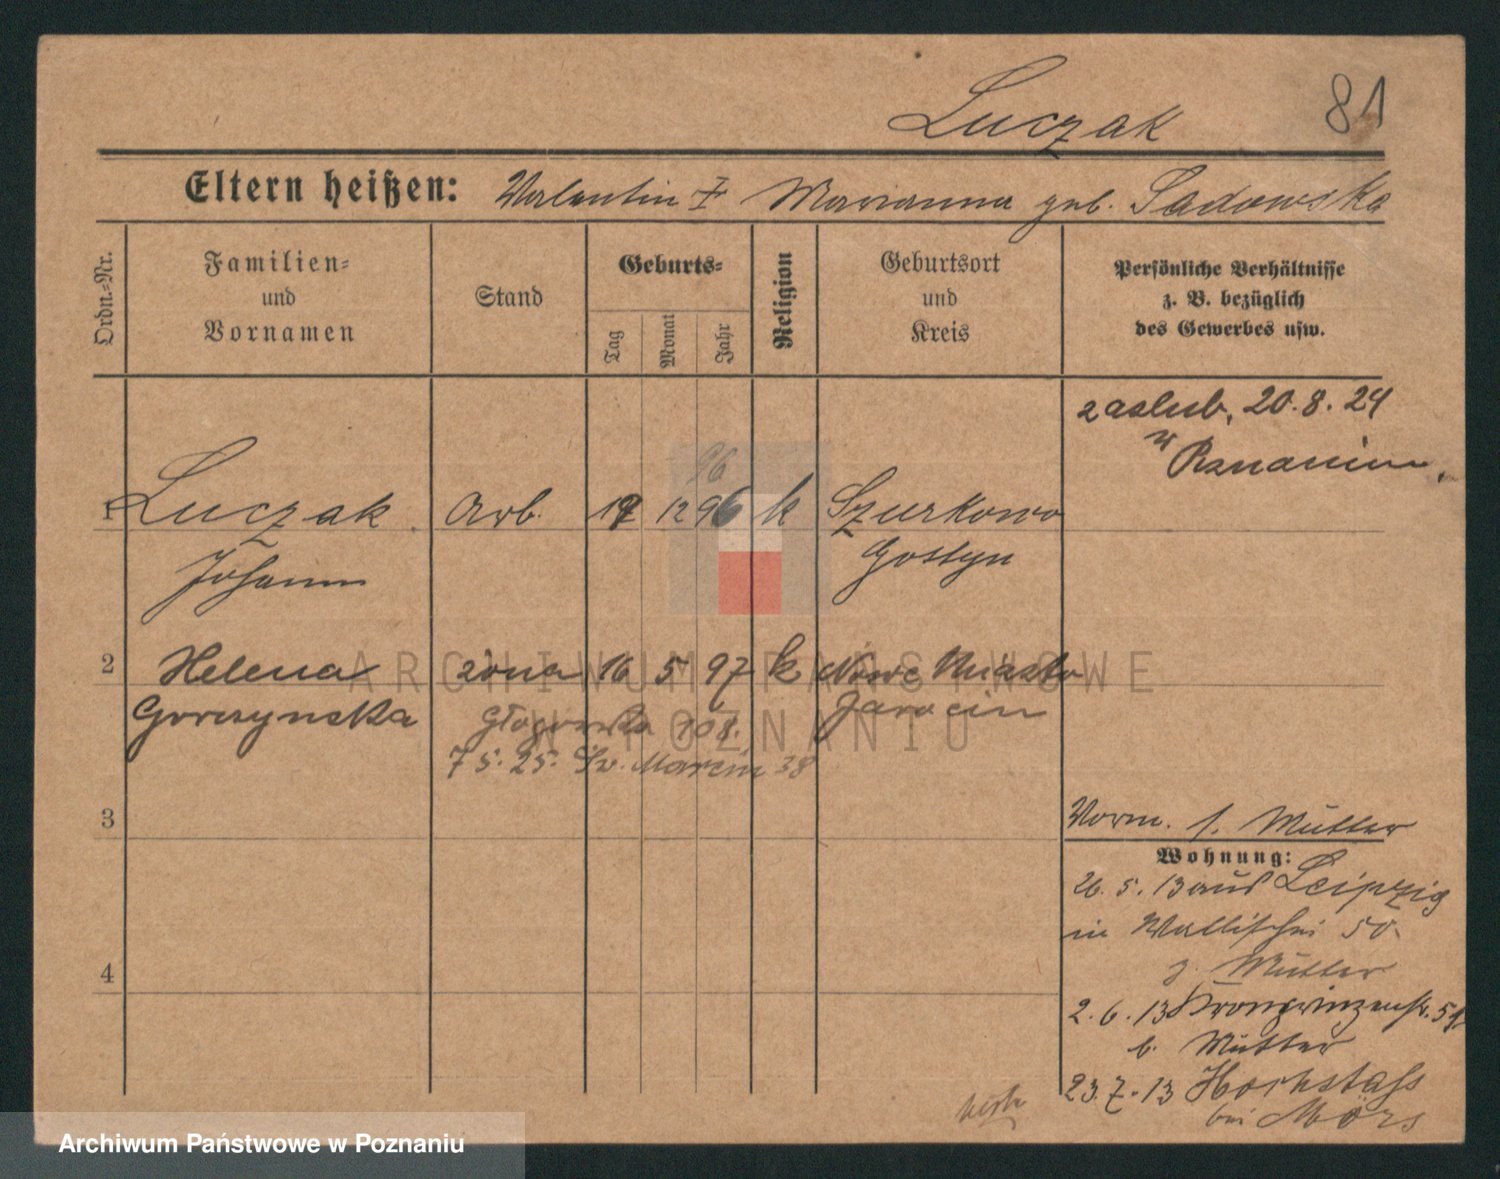 Luczak 81
Eltern heißen: Valentin Marianna geb. Sadowska
Ordn.-Nr.
Familien- und Vornamen
Stand
Geburts-
Tag
Monat
Jahr
Religion
Geburtsort und Kreis
Persönliche Verhältnisse z. B. bezüglich des Gewerbes usw.
zaslub. 20.8.24
w Poznaniu
96
1 Luczak Arb. 12 96 k Szurkowo
Johann Gostyn
2 Helena żona 16 5 97 k Nowe Miasto
Gorczynska Głogowska 108. Jarocin
7 5. 25. Św. Marcin 38
3
Vorm. s. Mutter
Wohnung:
26. 5. 13 aus Leipzig
in Wallischei 50.
z. Mutter
4
2. 6. 13 Kronprinzenstr. 51
b. Mutter
23. 7. 13 Hochstass
bei Mörs
ARCHIWUM PAŃSTWOWE
W POZNANIU
Archiwum Państwowe w Poznaniu